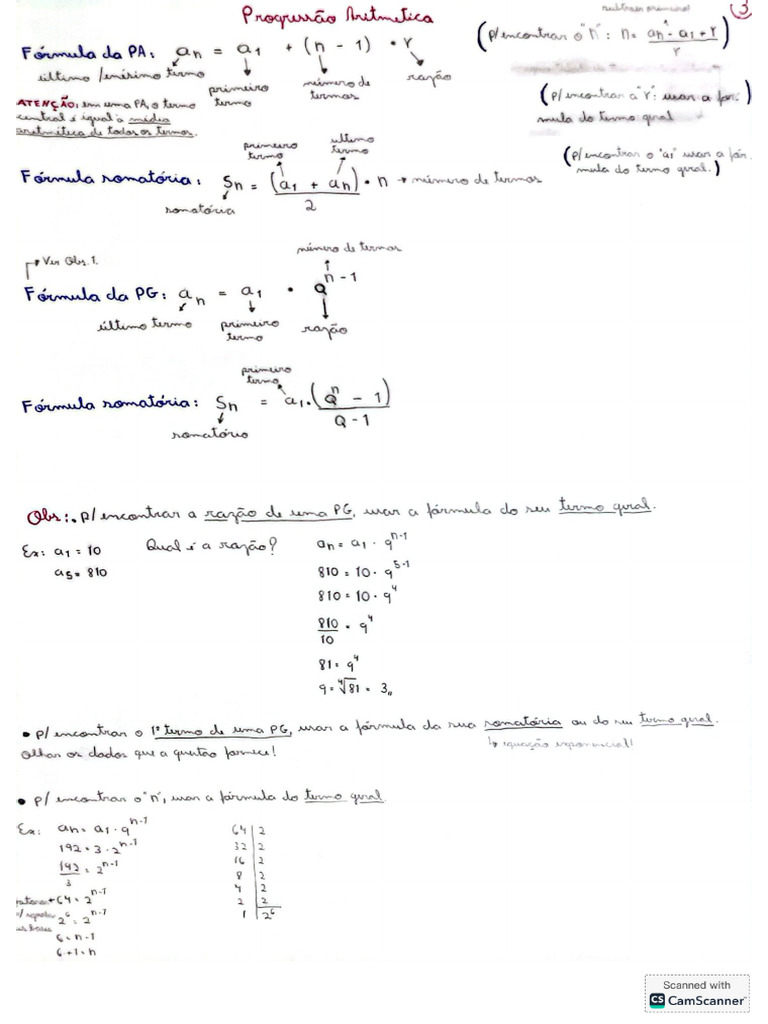 Progressão Aritmetica
3
Fórmula da PA: an = a1 + (n - 1) . r
último /enésimo termo
primeiro termo
número de termos
razão
subtrair primeiro!
(p/ encontrar o "n": n = an - a1 + r / r)
(p/ encontrar a "r": usar a fórmula do termo geral)
ATENÇÃO: em uma PA, o termo
central é igual à média
aritmética de todos os termos.
(p/ encontrar o "a1" usar a fórmula do termo geral.)
primeiro termo
ultimo termo
Fórmula somatória: Sn = (a1 + an) . n / 2 → número de termos
somatória
Ver Obs. 1.
número de termos
Fórmula da PG: an = a1 . Q^n - 1
último termo
primeiro termo
razão
primeiro termo
Fórmula somatória: Sn = a1 . (Q^n - 1) / Q - 1
somatório
Obs: • p/ encontrar a razão de uma PG, usar a fórmula do seu termo geral.
Ex: a1 = 10 Qual é a razão? an = a1 . q^n-1
a5 = 810 810 = 10 . q^5-1
810 = 10 . q^4
810/10 = q^4
81 = q^4
q = ⁴√81 = 3,,
• p/ encontrar o 1º termo de uma PG, usar a fórmula da sua somatória ou do seu termo geral.
Olhar os dados que a questão fornece!
↳ equação exponencial!
• p/ encontrar o "n", usar a fórmula do termo geral
Ex: an = a1 . q^n-1
192 = 3 . 2^n-1
192/3 = 2^n-1
64 = 2^n-1
2^6 = 2^n-1
6 = n-1
6 + 1 = n
64 | 2
32 | 2
16 | 2
8 | 2
4 | 2
2 | 2
1 | 2^6
Scanned with
CS CamScanner